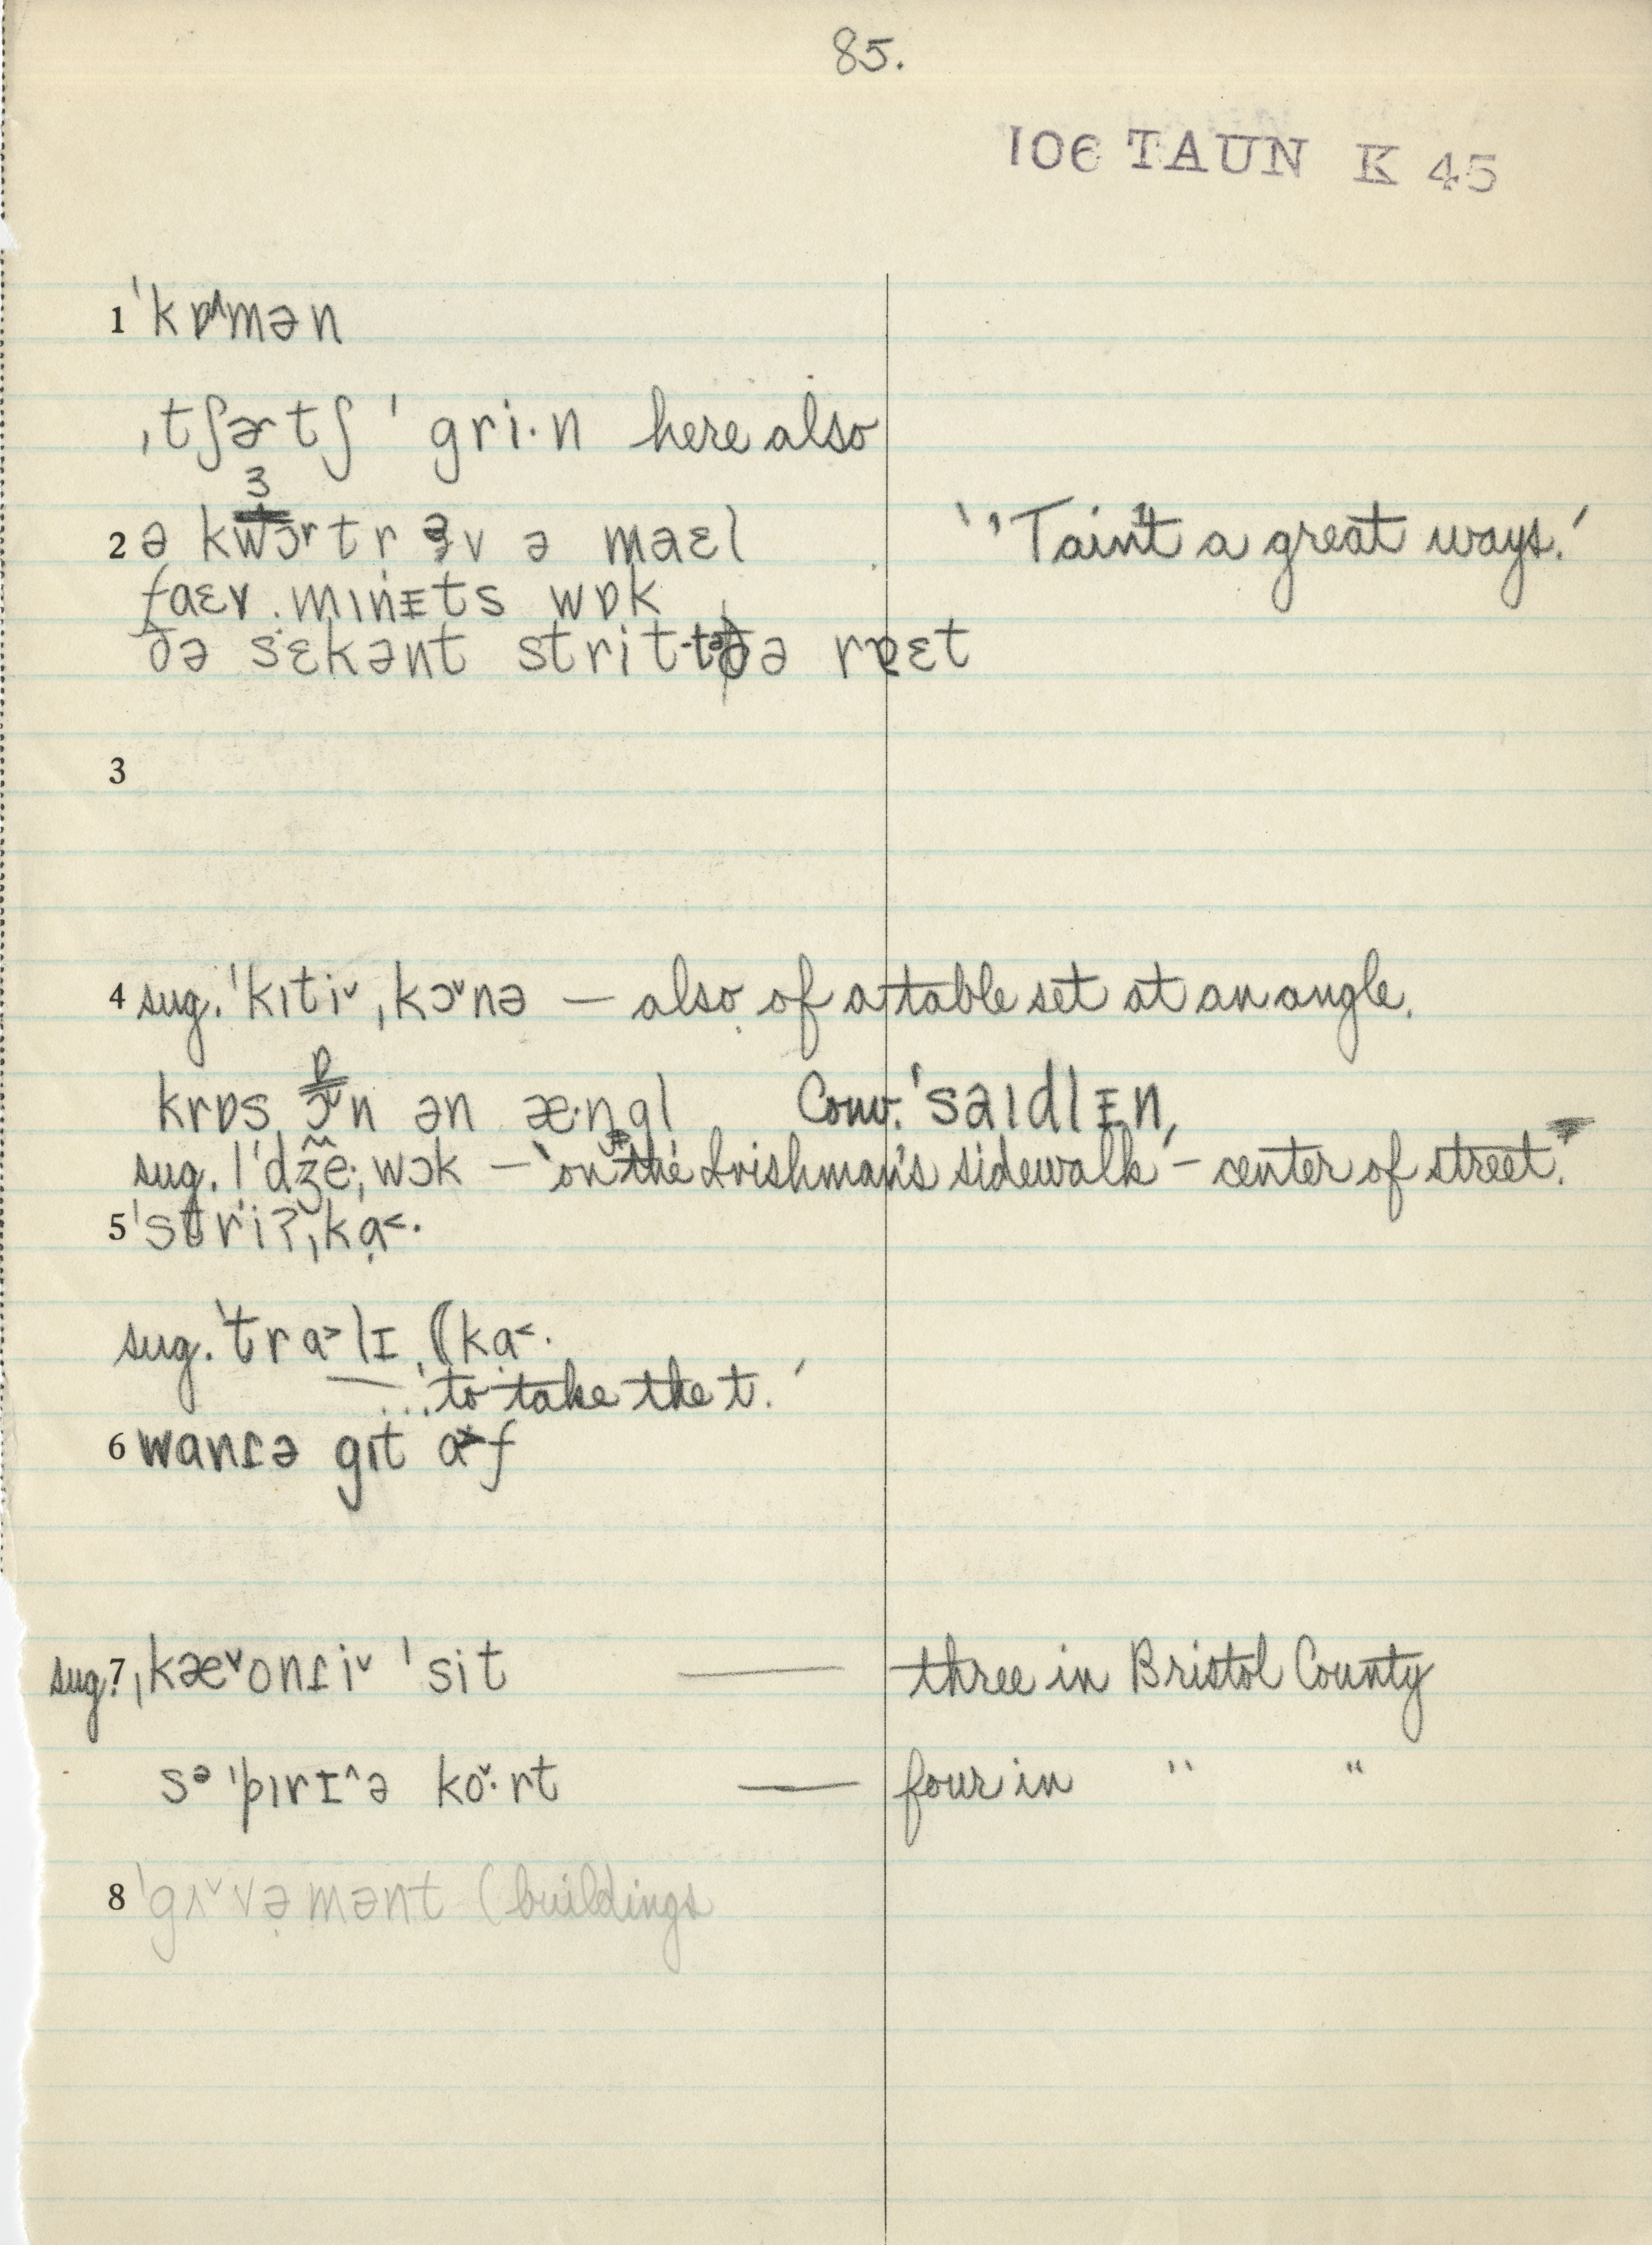 85.
106 TAUN K 45
1 ˈkɒ^mən
ˌtʃɚtʃ ˈgri·n here also
3
2 ə kwɔrtr əv ə maɛl ‘'Tain't a great ways.’
faɛv minᵻts wɒk
ðə sɛkənt strit tə ðə rɐɛt
3
4 sug. ˈkɪtiˇ ˌkɔˇnə — also of a table set at an angle.
ɒ
krɒs ɔˇn ən æ·ŋgl Conv. ˈsaɪdlᵻn,
sug. ˈdʒeˌwɔk — ‘on the Irishman's sidewalk’ – center of street.
5 ˈstriʔˌkɑ˂·
sug. ˈtrɑ˃lɪ (kɑ˂·
— ...‘to take the t.’
6 wanɾə gɪt ɑ˃f
sug. 7 ˌkæˇonɾiˇ ˈsit — three in Bristol County
sᵊˈpɪrɪ^ə koˇ·rt — four in " "
8 ˈgʌˇvəmənt (buildings